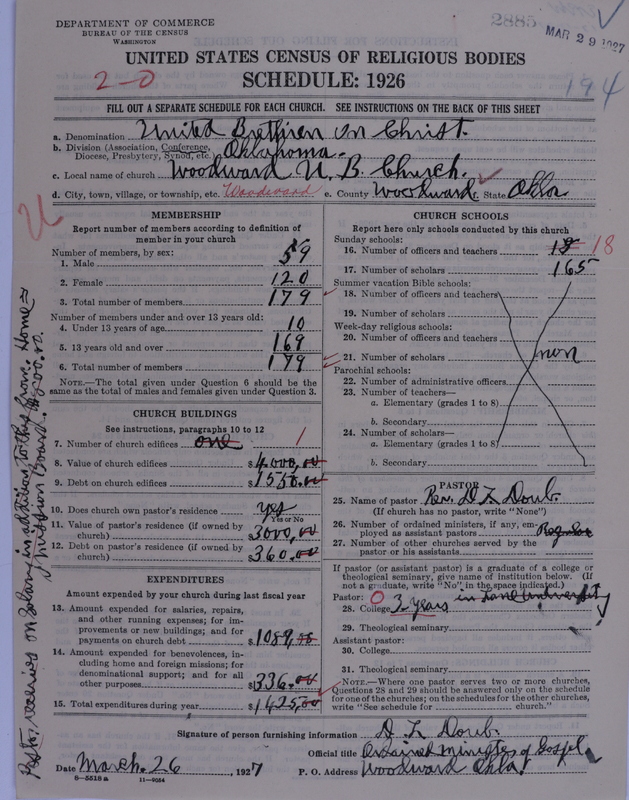 DEPARTMENT OF COMMERCE
BUREAU OF THE CENSUS
WASHINGTON
2885
MAR 29 1927
UNITED STATES CENSUS OF RELIGIOUS BODIES
2-0
SCHEDULE: 1926
194
FILL OUT A SEPARATE SCHEDULE FOR EACH CHURCH. SEE INSTRUCTIONS ON THE BACK OF THIS SHEET
a. Denomination United Brethren in Christ.
b. Division (Association, Conference, Diocese, Presbytery, Synod, etc.) Oklahoma.
c. Local name of church Woodward U. B. Church.
d. City, town, village, or township, etc. Woodward e. County Woodward f. State Okla
MEMBERSHIP
Report number of members according to definition of
member in your church
Number of members, by sex:
1. Male 59
2. Female 120
3. Total number of members 179
Number of members under and over 13 years old:
4. Under 13 years of age 10
5. 13 years old and over 169
6. Total number of members 179
NOTE.—The total given under Question 6 should be the
same as the total of males and females given under Question 3.
CHURCH BUILDINGS
See instructions, paragraphs 10 to 12
7. Number of church edifices one 1
8. Value of church edifices $4000,00
9. Debt on church edifices $1550.00
10. Does church own pastor's residence yes
Yes or No
11. Value of pastor's residence (if owned by
church) $3000,00
12. Debt on pastor's residence (if owned by
church) $360.00
EXPENDITURES
Amount expended by your church during last fiscal year
13. Amount expended for salaries, repairs,
and other running expenses; for im-
provements or new buildings; and for
payments on church debt $1089,
14. Amount expended for benevolences, in-
cluding home and foreign missions; for
denominational support; and for all
other purposes $336.00
15. Total expenditures during year $1425,00
CHURCH SCHOOLS
Report here only schools conducted by this church
Sunday schools:
16. Number of officers and teachers 18 18
17. Number of scholars 165
Summer vacation Bible schools:
18. Number of officers and teachers
19. Number of scholars
Week-day religious schools:
20. Number of officers and teachers
21. Number of scholars non
Parochial schools:
22. Number of administrative officers
23. Number of teachers—
a. Elementary (grades 1 to 8)
b. Secondary
24. Number of scholars—
a. Elementary (grades 1 to 8)
b. Secondary
PASTOR
25. Name of pastor Rev. D L Doub.
(If church has no pastor, write "None")
26. Number of ordained ministers, if any, em-
ployed as assistant pastors
27. Number of other churches served by the
pastor or his assistants
If pastor (or assistant pastor) is a graduate of a college or
theological seminary, give name of institution below. (If
not a graduate, write "No" in the space indicated.)
Pastor: 0
28. College 3 years in Lane University
29. Theological seminary
Assistant pastor:
30. College
31. Theological seminary
NOTE.—Where one pastor serves two or more churches,
Questions 28 and 29 should be answered only on the schedule
for one of the churches; on the schedules for the other churches,
write "See schedule for church."
Signature of person furnishing information D L Doub.
Official title Ordained minister of Gospel
Date March. 26, 1927 P. O. Address Woodward Okla.
8—5518 a 11—9054
Pastor, receives on Salary in addition to this from Home
Mission Board.